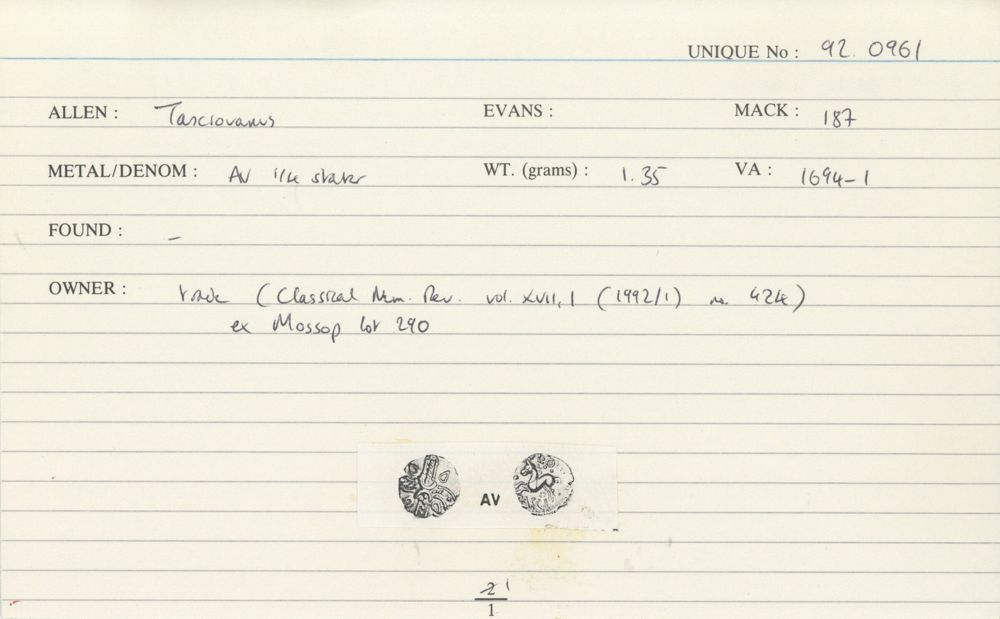 UNIQUE No : 92. 0961
ALLEN : Tasciovanus EVANS : MACK : 187
METAL/DENOM : AV 1/4 stater WT. (grams) : 1.35 VA : 1694-1
FOUND : –
OWNER : trade (Classical Num. Rev. vol. XVII, 1 (1992/1) no. 424)
ex Mossop lot 290
AV
2 1
1